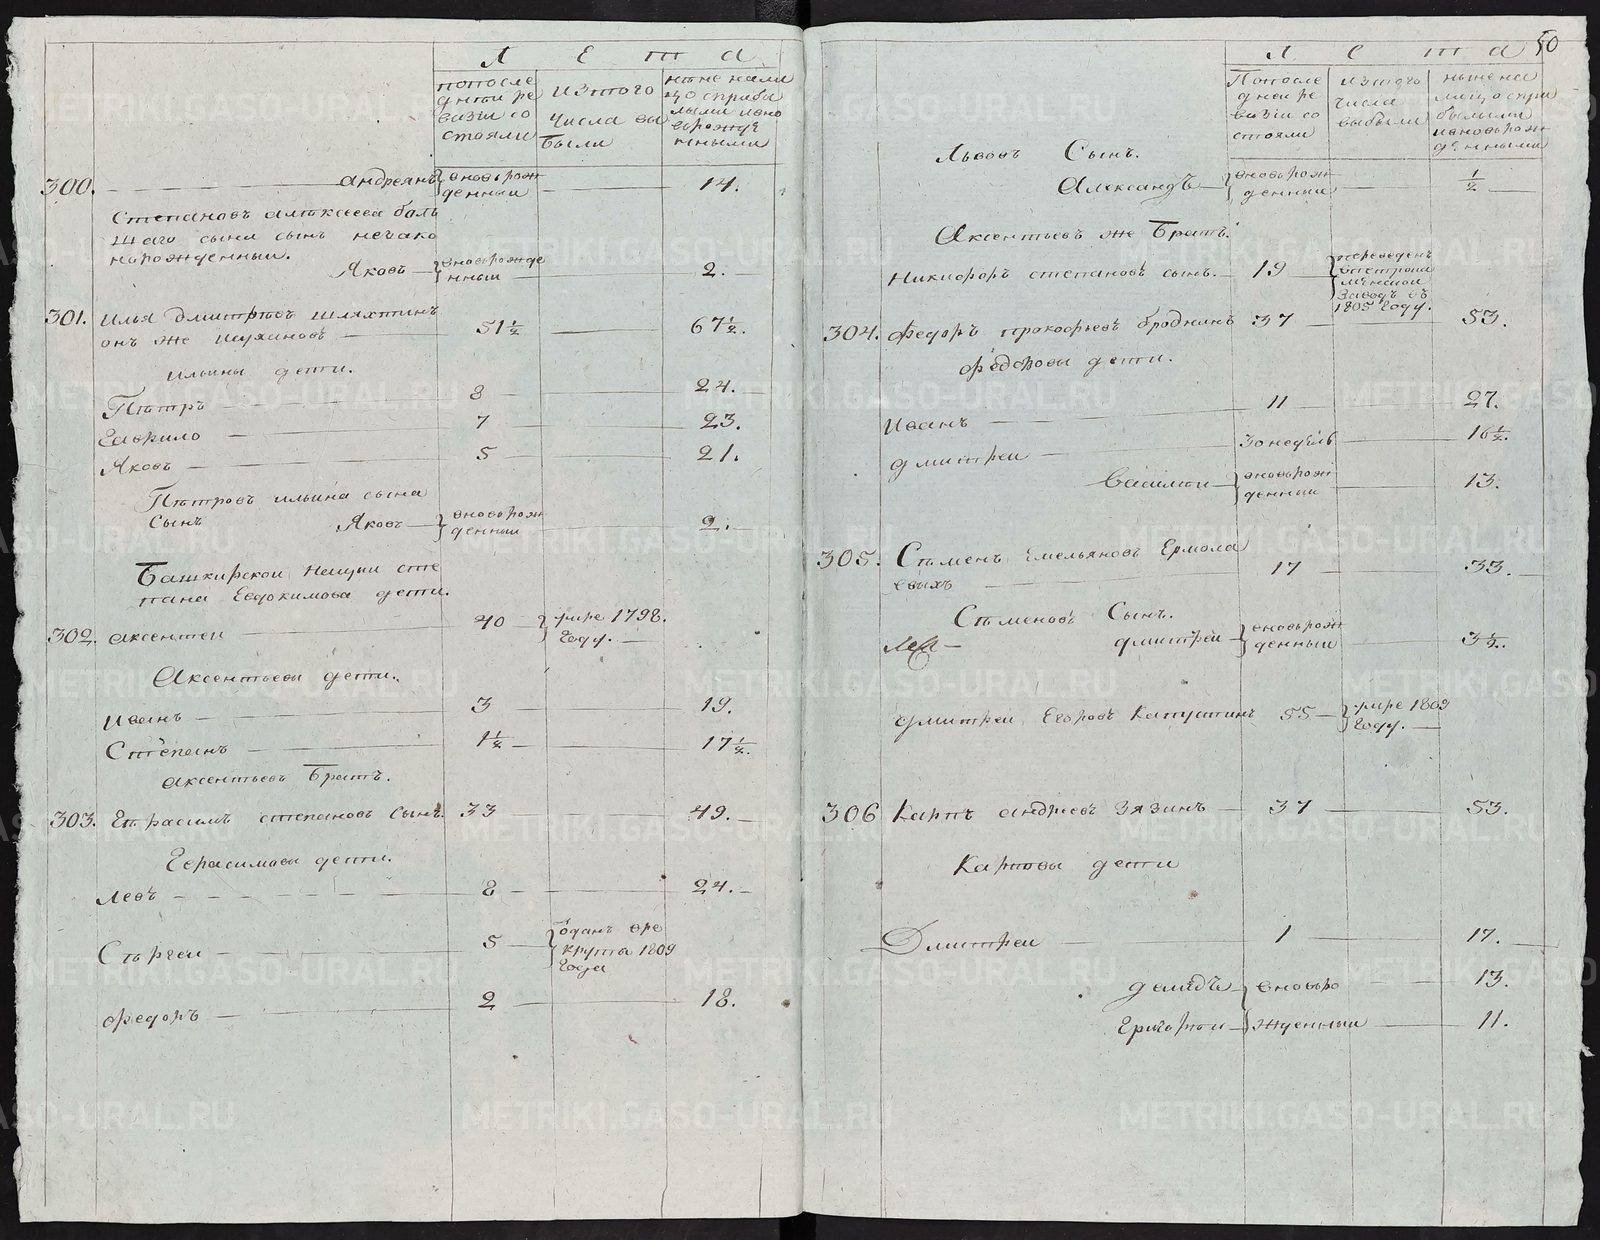 Л Е т а
попосле
днеи ре
визіи со
стояли
изтого
числа вы
были
ныне нали
цо сприбы
лыми ино
ворожде
нными
300. Андреянъ вновьрож
денныи 14.
Степановъ алексеева боль
шаго сына сынъ
норожденныи.
Яковъ вноворожде
нныи 2.
301. Илья дмитріевъ шляхтинъ
онъ же 51½ 67½.
Ильины дети.
Петръ 8 24.
Гаврило 7 23.
Яковъ 5 21.
Петровъ ильина сына
сынъ Яковъ вновьрож
денныи 2.
Башкирской нации сте
пана Евдокимова дети.
302. аксентеи 40 умре 1798.
году.
Аксентьевы дети.
Иванъ 3 19.
Степанъ 1½ 17½.
аксентьевъ Братъ.
303. Герасимъ степановъ сынъ. 33 49.
Герасимовы дети.
Левъ 8 24.
Сергеи 5 оданъ вре
крута 1809
года
Федоръ 2 18.
50
Л Е т а
Попосле
днеи ре
визіи со
стояли
изтого
числа
выбыли
ныне на
лицо спри
былыми
иновьрож
денными
Львовъ Сынъ.
Александъ вновьрож
денныи ½
Аксентьевъ же Братъ.
Никифоръ степановъ сынъ. 19 переведенъ
заводъ въ
1805 году.
304. Федоръ прокофьевъ бродкинъ 37 53.
Федоровы дети.
Иванъ 11 27.
дмитреи 30 недель 16½.
Василеи вновьрож
денныи 13.
305. Семенъ Емельяновъ Ермола
евыхъ 17 33.
Семеновъ Сынъ.
дмитреи вновьрож
денныи 3½.
дмитреи Егоровъ Капустинъ 55 умре 1809
году.
306 Карпъ андреевъ Зязинъ 37 53.
Карповы дети
Дмитреи 1 17.
демидъ вновьро 13.
Григореи жденныи 11.
METRIKI.GASO-URAL.RU